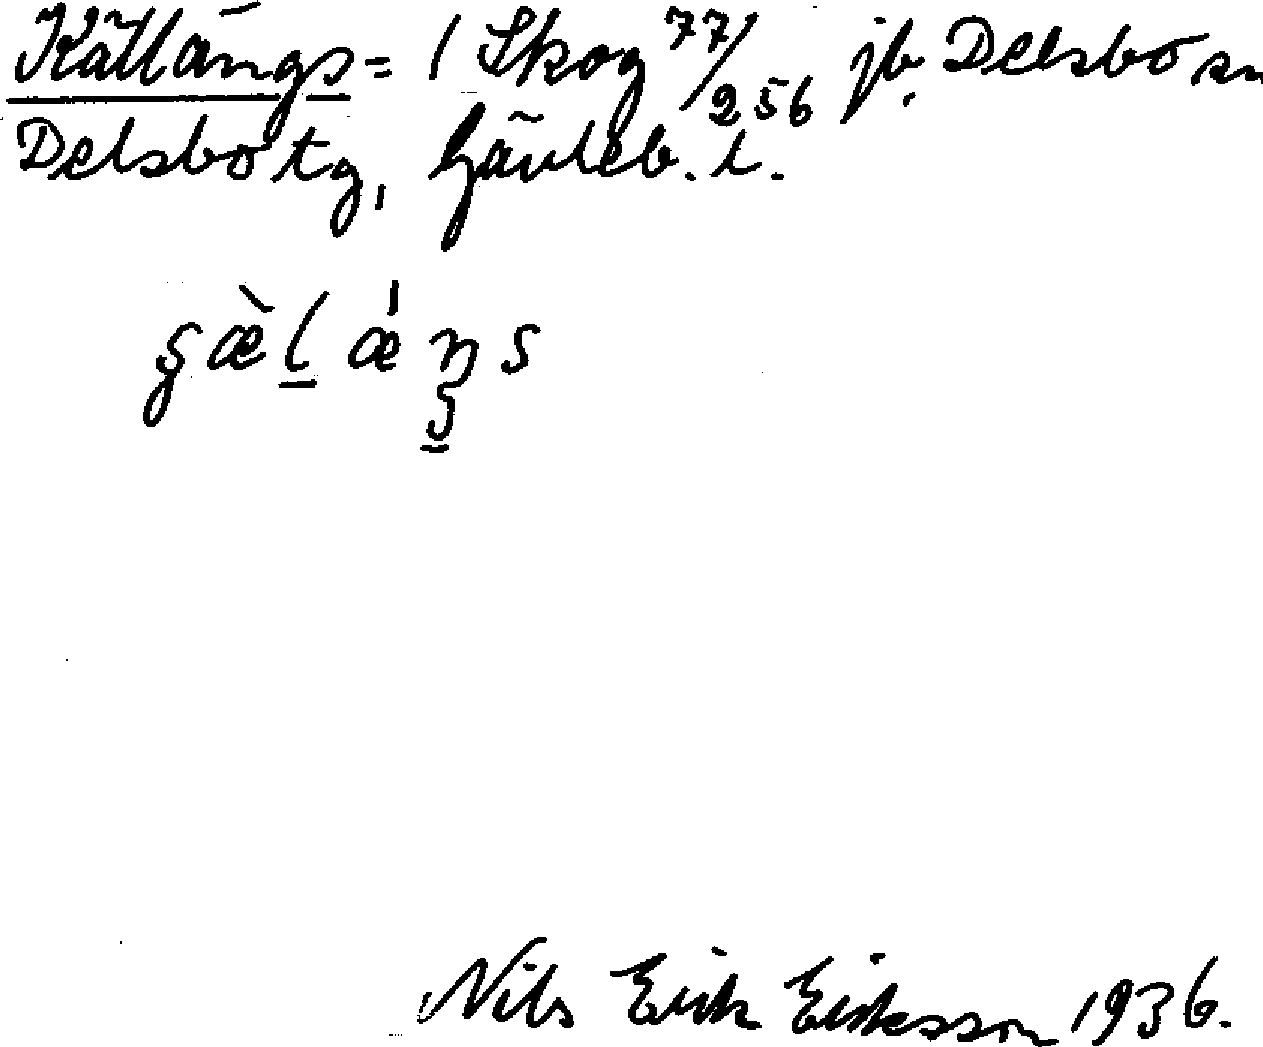 Källängs= 1 Skog 77/256 jb. Delsbo sn
Delsbo tg, Gävleb. l.
Nils Erik Eriksson 1936.